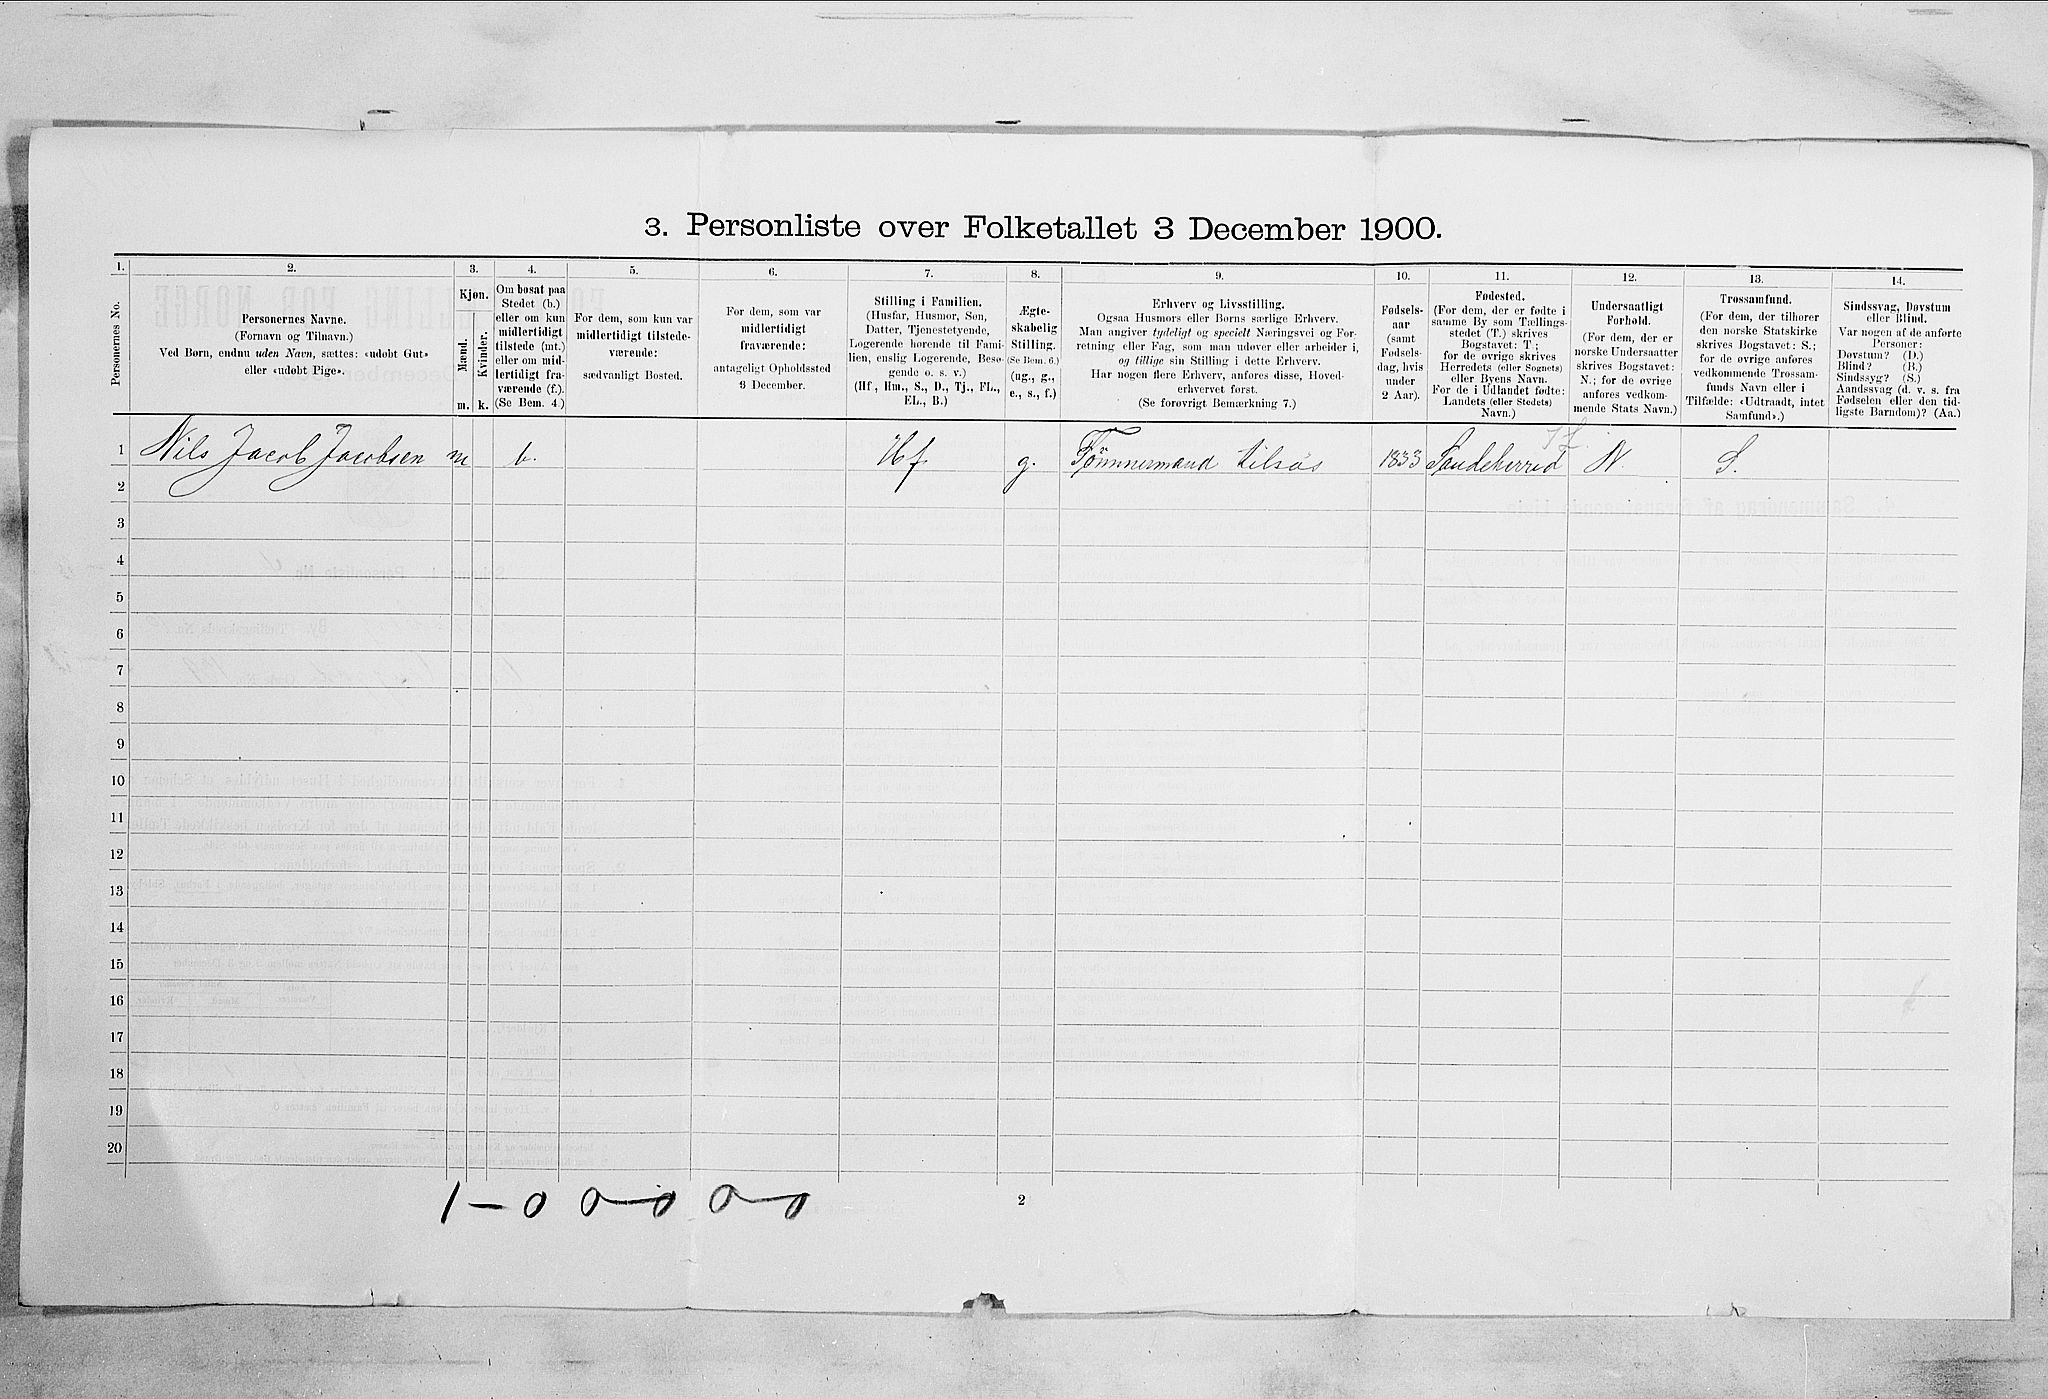 3. Personliste over Folketallet 3 December 1900.
1.
2.
3.
4.
5.
6.
7.
8.
9.
10.
11.
12.
13.
14.
Personernes No.
Personernes Navne.
(Fornavn og Tilnavn.)
Ved Børn, endnu uden Navn, sættes: «udøbt Gut»
eller «udøbt Pige».
Kjøn.
Mænd.
Kvinder.
m.
k.
Om bosat paa
Stedet (b.)
eller om kun
midlertidigt
tilstede (mt.)
eller om mid-
lertidigt fra-
værende (f.).
(Se Bem. 4.)
For dem, som kun var
midlertidigt tilstede-
værende:
sædvanligt Bosted.
For dem, som var
midlertidigt
fraværende:
antageligt Opholdssted
3 December.
Stilling i Familien.
(Husfar, Husmor, Søn,
Datter, Tjenestetyende,
Logerende hørende til Fami-
lien, enslig Logerende, Besø-
gende o. s. v.)
(Hf., Hm., S., D., Tj., FL.,
EL., B.)
Ægte-
skabelig
Stilling.
(Se Bem. 6.)
(ug., g.,
e., s., f.)
Erhverv og Livsstilling.
Ogsaa Husmors eller Børns særlige Erhverv.
Man angiver tydeligt og specielt Næringsvei og For-
retning eller Fag, som man udøver eller arbeider i,
og tillige sin Stilling i dette Erhverv.
Har nogen flere Erhverv, anføres disse, Hoved-
erhvervet først.
(Se forøvrigt Bemærkning 7.)
Fødsels-
aar
(samt
Fødsels-
dag, hvis
under
2 Aar).
Fødested.
(For dem, der er fødte i
samme By som Tællings-
stedet (T.) skrives
Bogstavet: T.;
for de øvrige skrives
Herredets (eller Sognets)
eller Byens Navn.
For de i Udlandet fødte:
Landets (eller Stedets)
Navn.)
Undersaatligt
Forhold.
(For dem, der er
norske Undersaatter
skrives Bogstavet:
N.; for de øvrige
anføres vedkom-
mende Stats Navn.)
Trossamfund.
(For dem, der tilhører
den norske Statskirke
skrives Bogstavet: S.;
for de øvrige anføres
vedkommende Trossam-
funds Navn eller i
Tilfælde: «Udtraadt, intet
Samfund».)
Sindssvag, Døvstum
eller Blind.
Var nogen af de anførte
Personer:
Døvstum? (D.)
Blind? (B.)
Sindssyg? (S.)
Aandssvag (d. v. s. fra
Fødselen eller den tid-
ligste Barndom)? (Aa.)
1 Nils Jacob Jacobsen m b. Hf g. Tømmermand tilsøs 1833 Sandeherred N. S.
2
3
4
5
6
7
8
9
10
11
12
13
14
15
16
17
18
19
20
1 - 0 0 - 0 0 - 0
2